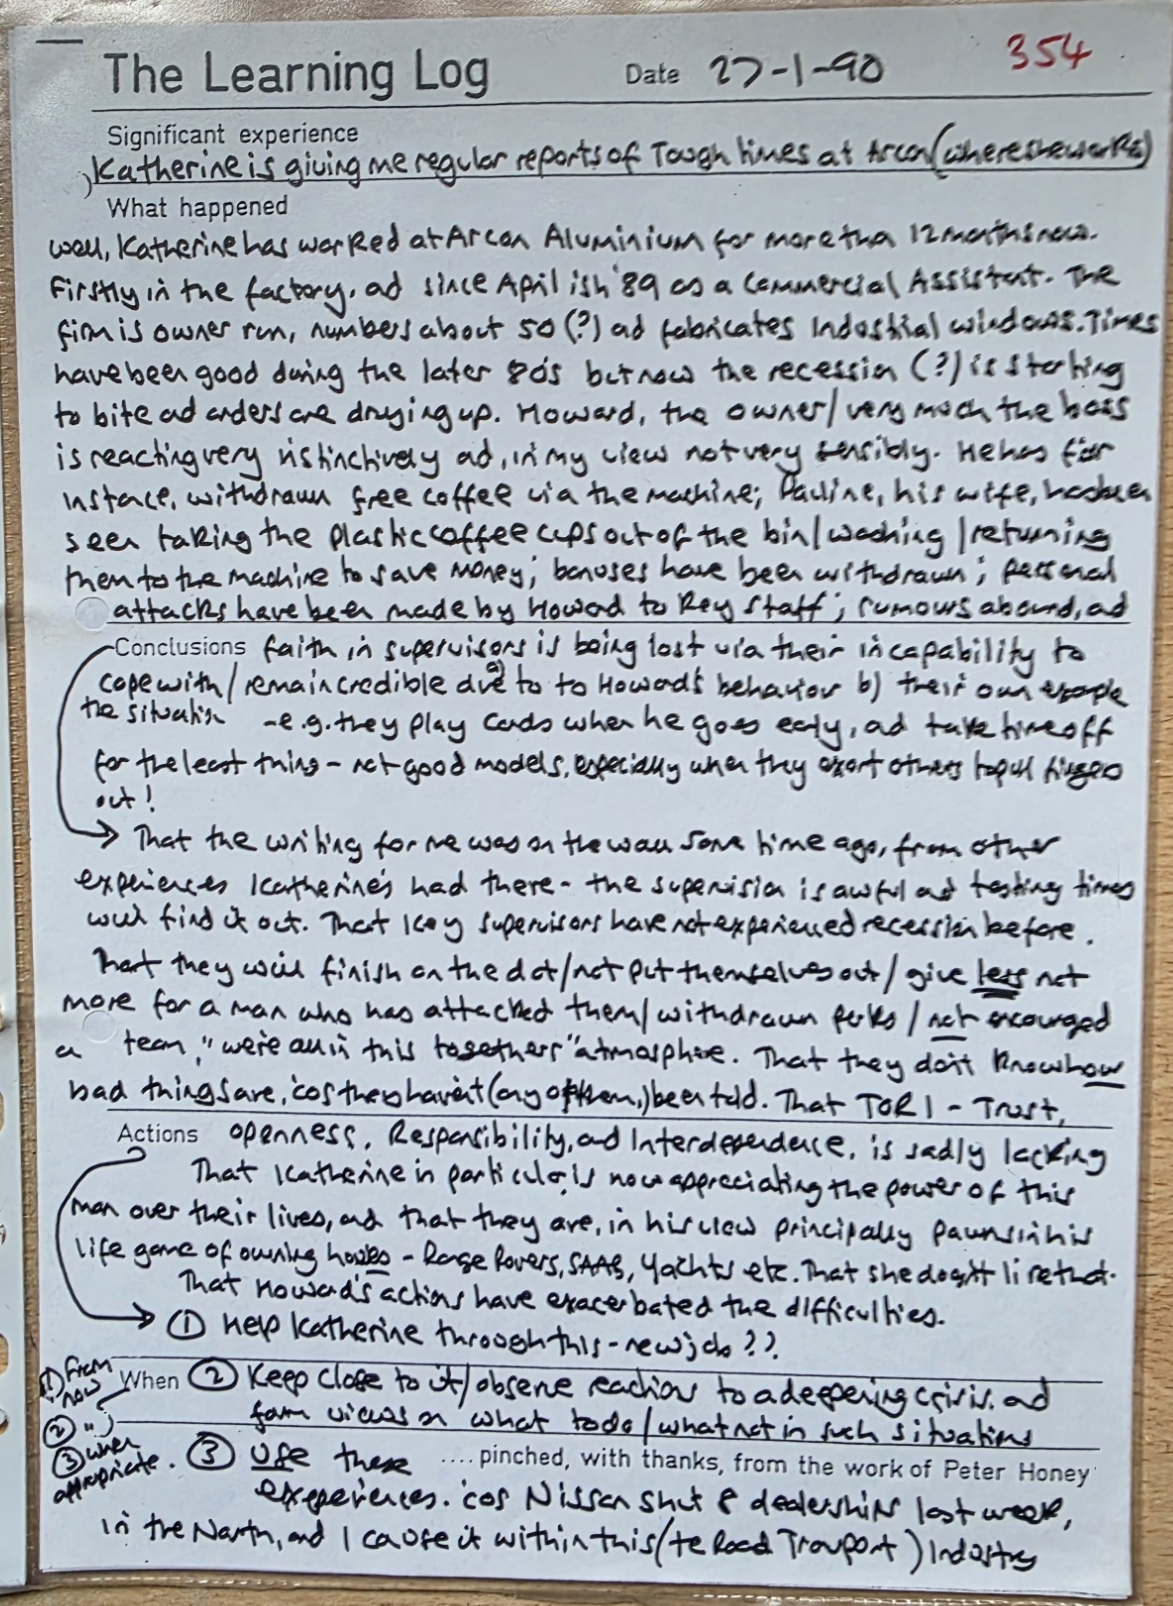 The Learning Log Date 27-1-90 354
Significant experience
Katherine is giving me regular reports of Tough times at Arcon (where she works)
What happened
well, Katherine has worked at Arcon Aluminium for more tha 12 months now.
Firstly in the factory, ad since April ish '89 as a Commercial Assistant. The
firm is owner run, numbers about 50 (?) ad fabricates Industrial windows. Times
have been good during the later 80's but now the recession (?) is starting
to bite ad orders are drying up. Howard, the owner/very much the boss
is reacting very instinctively ad, in my view not very sensibly. He has for
instace, withdrawn free coffee via the machine; Pauline, his wife, has been
seen taking the plastic coffee cups out of the bin/washing/returning
them to the machine to save money; bonuses have been withdrawn; personal
attacks have been made by Howard to key staff; rumours abound, ad
Conclusions faith in supervisors is being lost via their incapability to
cope with/remain credible due to a) to Howard's behavior b) their own example
the situation -e.g. they play cards when he goes early, ad take time off
for the least thing - not good models, especially when they exort others to pull fingers
out!
That the writing for me was on the wall some time ago, from other
experiences Katherine's had there - the supervision is awful ad testing times
will find it out. That key supervisors have not experienced recession before.
That they will finish on the dot/not put themselves out/give less not
more for a man who has attacked them/withdrawn perks/not encouraged
a team, "we're all in this together" atmosphere. That they don't know how
bad things are, 'cos they haven't (any of them,) been told. That TORI - Trust,
Actions Openness, Responsibility, and Interdependence, is sadly lacking
That Katherine in particular is now appreciating the power of this
man over their lives, and that they are, in his view principally pawns in his
life game of owning houses - Range Rovers, SAAB, Yachts etc. That she doesn't like that.
That Howard's actions have exacerbated the difficulties.
① Help Katherine through this - new job??
① from now When ② Keep close to it/observe reactions to a deepening crisis, ad
② " form views on what to do/what not in such situations
③ when appropriate. ③ Use these .... pinched, with thanks, from the work of Peter Honey
experiences. 'cos Nissan shut 8 dealerships last week,
in the North, and I can see it within this (te Road Transport) Industry